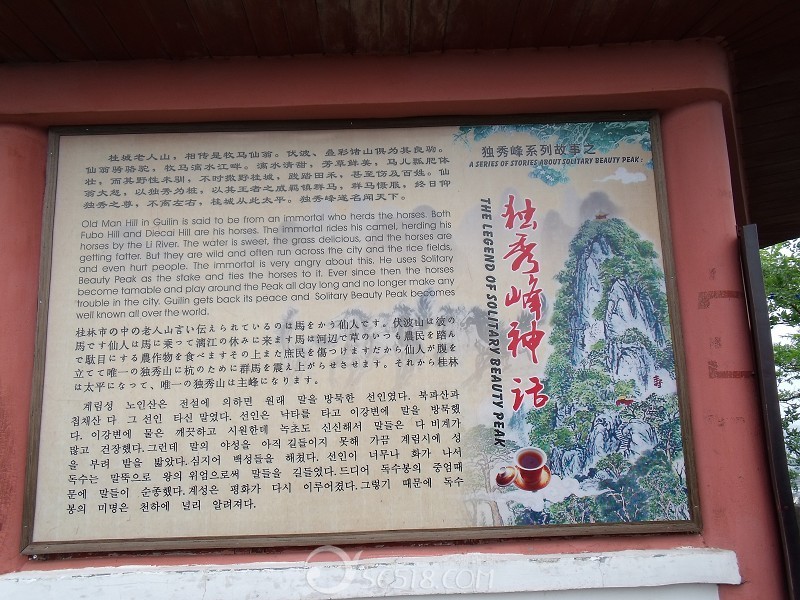 桂城老人山，相传是牧马仙翁。伏波、叠彩诸山俱为其良驹。
仙翁骑骆驼，牧马漓水江畔。漓水清甜，芳草鲜美，马儿瓢肥体
壮，而其野性未驯，不时撒野桂城，踐踏田禾，甚至伤及百姓。仙
翁大怒，以独秀为桩，以其王者之威羁镇群马，群马慑服，终日仰
独秀之尊，不离左右，桂城从此太平。独秀峰遂名闻天下。
Old Man Hill in Guilin is said to be from an immortal who herds the horses. Both
Fubo Hill and Diecai Hill are his horses. The immortal rides his camel, herding his
horses by the Li River. The water is sweet, the grass delicious, and the horses are
getting fatter. But they are wild and often run across the city and the rice fields,
and even hurt people. The immortal is very angry about this. He uses Solitary
Beauty Peak as the stake and ties the horses to it. Ever since then the horses
become tamable and play around the Peak all day long and no longer make any
trouble in the city. Guilin gets back its peace and Solitary Beauty Peak becomes
well known all over the world.
桂林市の中の老人山言い伝えられているのは馬をかう仙人です。伏波山は彼の
馬です仙人は馬に乗って漓江の休みに来ます馬は河辺で草のいつも農民を踏ん
で駄目にする農作物を食べますその上また庶民を傷つけますだから仙人が腹を
立てて唯一の独秀山に杭のために群馬を震え上がらせさせます。それから桂林
は太平になって、唯一の独秀山は主峰になります。
계림성 노인산은 전설에 의하면 원래 말을 방목한 선인였다. 복파산과
첩채산 다 그 선인 타신 말였다. 선인은 낙타를 타고 이강변에 말을 방목했
다. 이강변에 물은 깨끗하고 시원한데 녹초도 신선해서 말들은 다 비계가
많고 건장했다.그런데 말의 야성을 아직 길들이지 못해 가끔 계림시에 성
을 부려 밭을 밟았다.심지어 백성들을 해쳤다. 선인이 너무나 화가 나서
독수는 말뚝으로 왕의 위엄으로써 말들을 길들였다.드디어 독수봉의 중엄때
문에 말들이 순종했다.계성은 평화가 다시 이루어졌다.그렇기 때문에 독수
봉의 미명은 천하에 널리 알려져다.
独秀峰系列故事之
A SERIES OF STORIES ABOUT SOLITARY BEAUTY PEAK:
独秀峰神话
THE LEGEND OF SOLITARY BEAUTY PEAK
寿